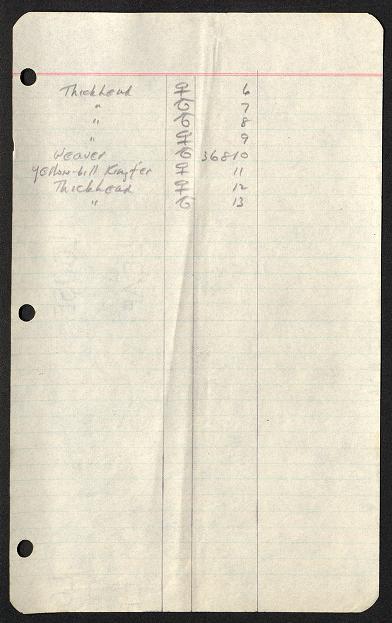 Thickhead ♀ 6
" ♂ 7
" ♂ 8
" ♀ 9
Weaver ♂ 36810
Yellow-bill Kingf'er ♀ 11
Thickhead ♀ 12
" ♂ 13